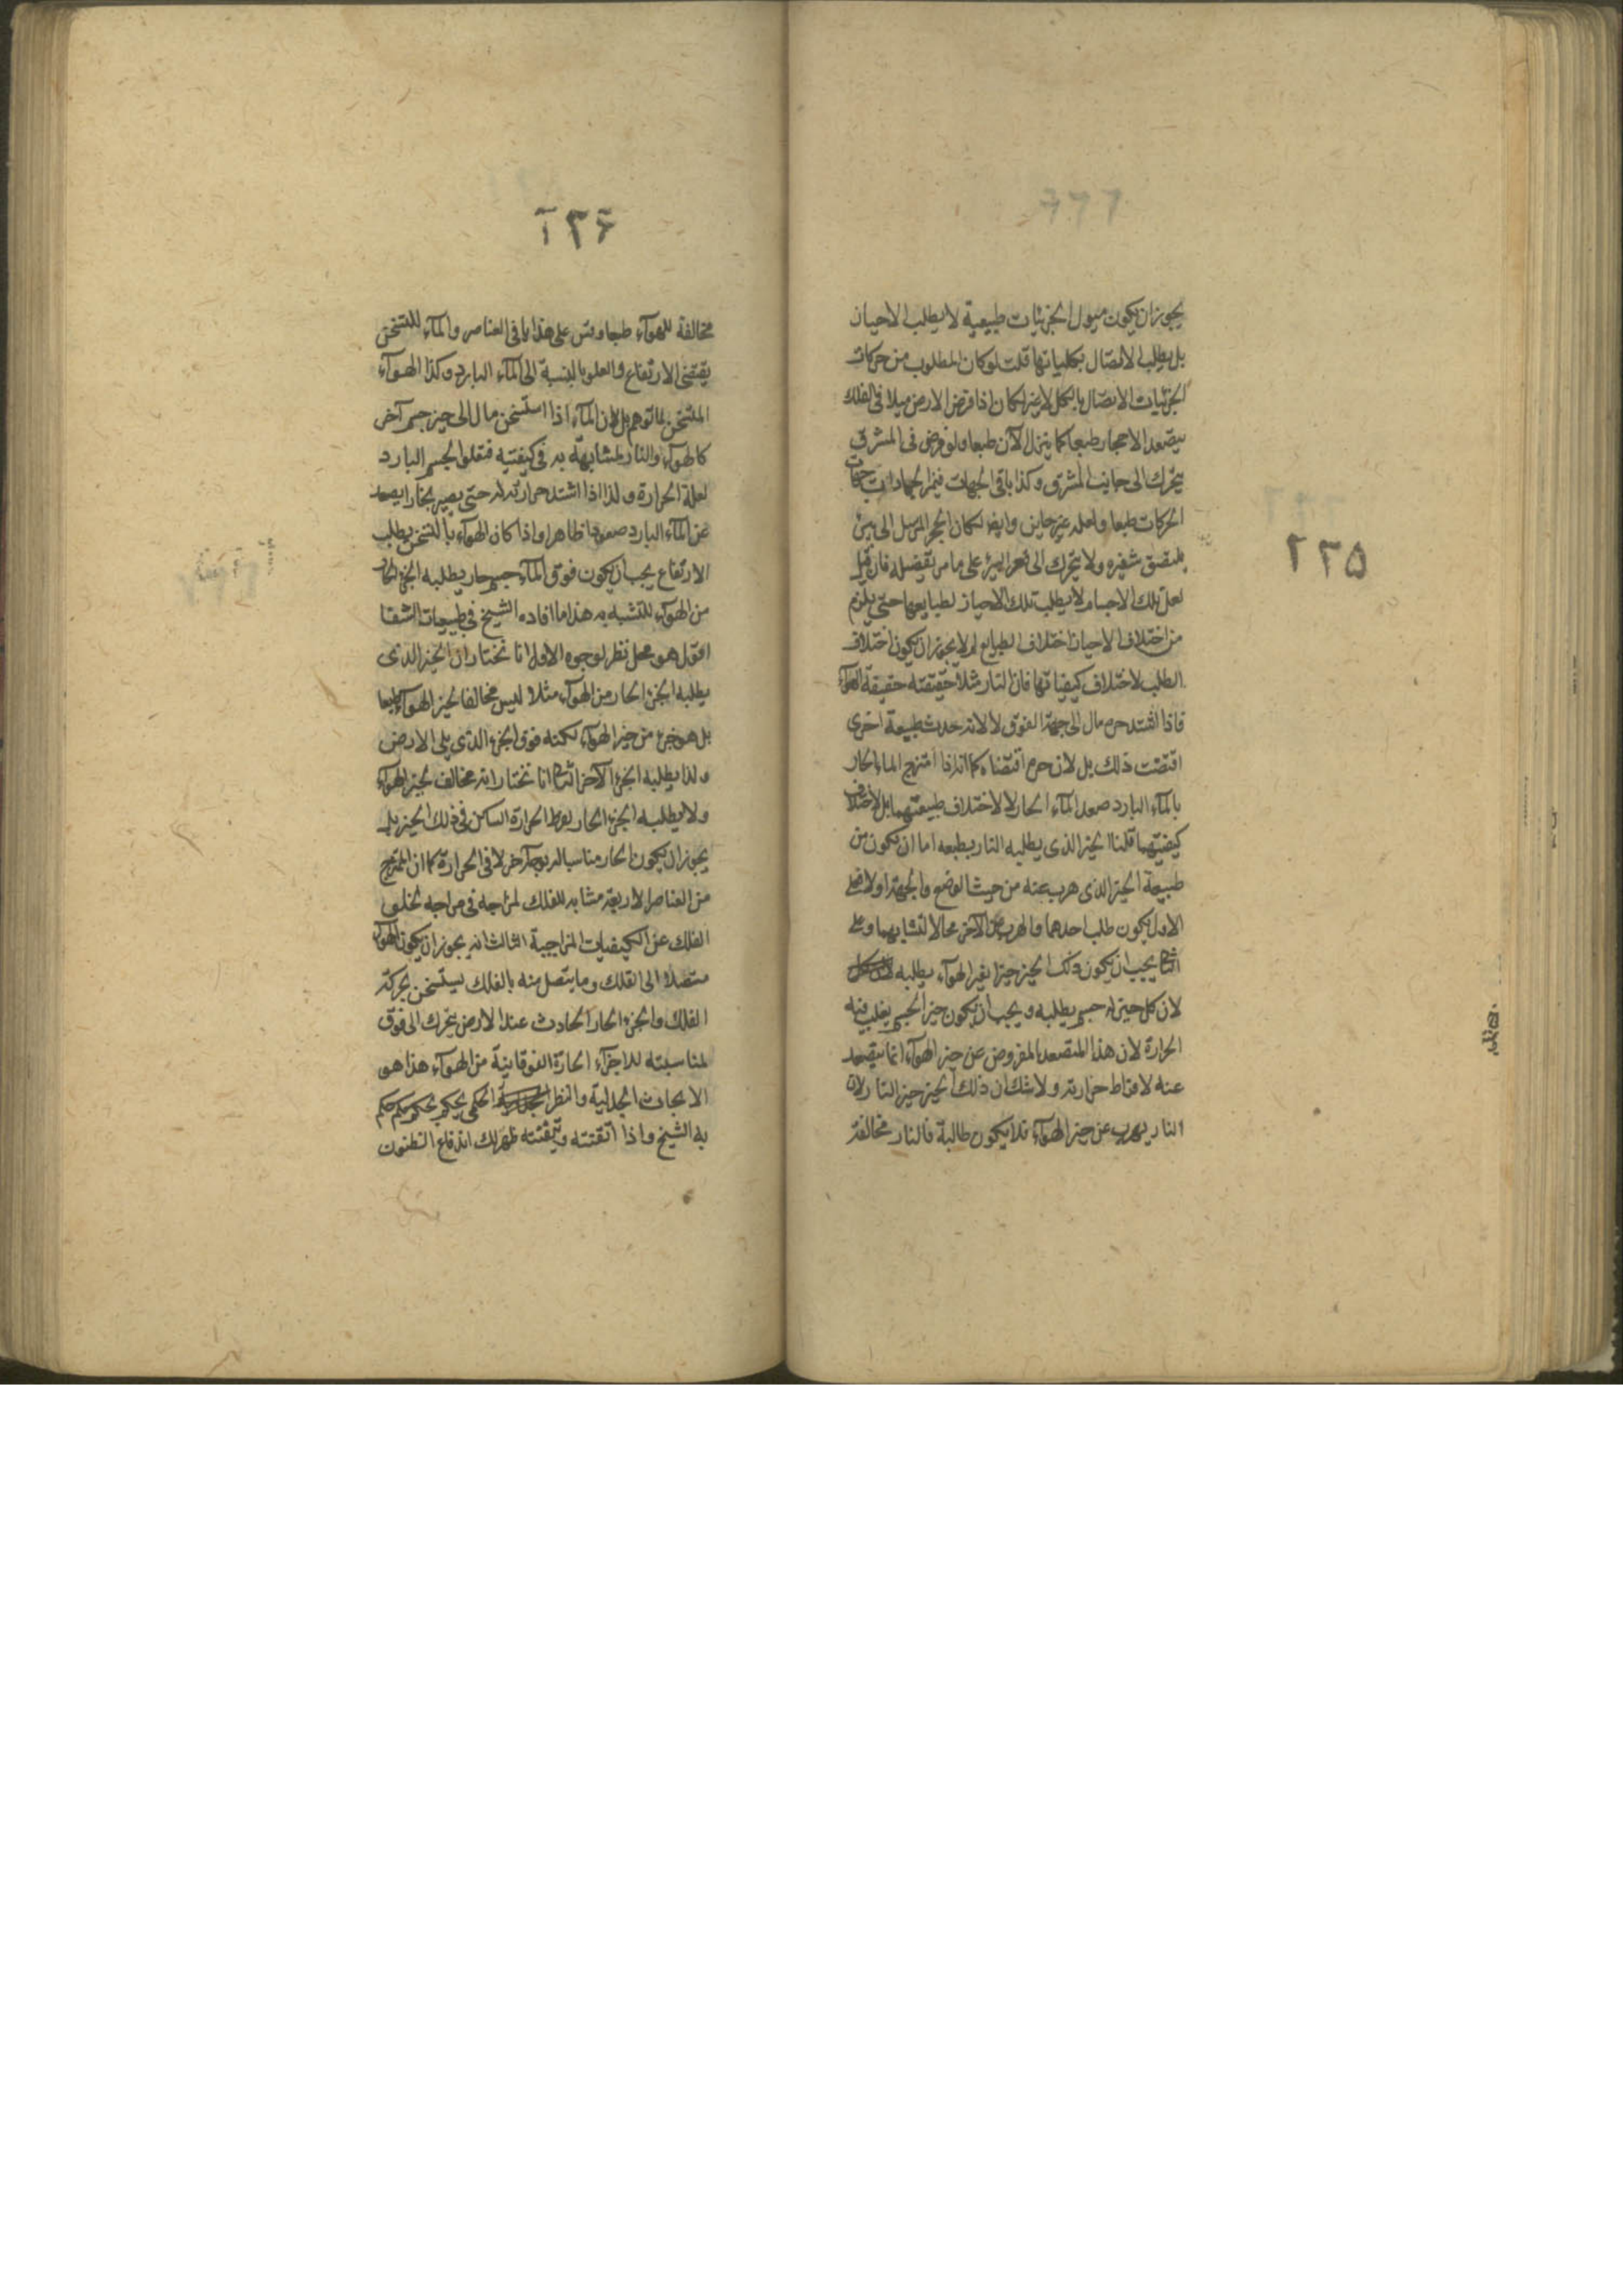 ٢٢٥
يجوز ان يكون ميول الجزئيات طبيعية لا يطلب الاحياز
بل يطلب الاتصال بكلياتها قلت لو كان المطلوب من حركات
الجزئيات الاتصال بالكل لا يضر لكان اذا فرض الارض ميلا في الفلك
يتصعد الاحجار طبعا كما ينزل الآن طبعا ولو فرض في المشرق
يتحرك الى جانب المشرق وكذا باقي الجهات
الحركات طبعا ولعله غير جايز وايضا لكان الحجر المرسل الى بئر
يلتصق شفيره ولا يتحرك الى قعر البئر على ما مر تفصيله فان قيل
لعل تلك الاجسام لا يطلب تلك الاحياز لطبايعها حتى يلزم
من اختلاف الاحياز اختلاف الطبايع لم لا يجوز ان يكون اختلاف
الطلب لاختلاف كيفياتها فان النار مثلا حقيقته حقيقة الهوآء
فاذا اشتد حره مال الى جهة الفوق لا لانه حدث طبيعة اخرى
اقتضت ذلك بل لان حره اقتضاه كما انه اذا امتزج الماء الحار
بالمآء البارد صعد المآء الحار لا لاختلاف طبيعتهما بل لاختلاف
كيفيتهما قلنا الحيز الذى يطلبه النار بطبعه اما ان يكون من
طبيعة الحيز الذى هرب عنه من حيث الوضع والجهة او لا فعلى
الاول يكون طلب احدهما والهرب عن الآخر محالا لتشابههما وعلى
الثانى يجب ان يكون ذلك الحيز حيزا لغير الهوآء يطلبه
لان كل حيز له جسم يطلبه ويجب ان يكون حيز الجسم يغلب فيه
الحرارة لان هذا المتصعد المفروض عن حيز الهوآء انما يتصعد
عنه لافراط حرارته ولا شك ان ذلك الحيز حيز النار لان
النار يهرب عن حيز الهوآء فلا يكون طالبة فالنار مخالفة
٢٢۶
مخالفة للهوآء طبعا وقس على هذا باقى العناصر والمآء للتسخن
يقتضى الارتفاع والعلو بالنسبة الى المآء البارد وكذا الهوآء
المتسخن لما توهم بل لان المآء اذا استسخن مال الى حيز جسم آخر
كالهوآء والنار لمشابهة به فى كيفيته فتعلو الجسم البارد
لعلة الحرارة ولذا اذا اشتد حرارته حتى يصير بخارا يصعد
عن المآء البارد صعودا ظاهرا واذا كان الهوآء بالتسخن يطلب
الارتفاع يجب ان يكون فوق المآء جسم حار يطلبه الجزء الحار
من الهوآء للتشبه به هذا ما افاده الشيخ فى طبيعيات الشفا
اقول هو محل نظر لوجوه الاول انا نختار ان الحيز الذى
يطلبه الجزء الحار من الهوآء مثلا ليس مخالفا لحيز الهوآء طبعا
بل هو جزء من حيز الهوآء لكنه فوق الجزء الذى يلى الارض
ولذا يطلبه الجزء الآخر الثانى انا نختار انه مخالف لحيز الهوآء
ولا يطلبه الجزء الحار لفرط الحرارة الساكن فى ذلك الحيز بل
يجوز ان يكون الحار مناسبا له بوجه آخر لا فى الحرارة كما ان الممتزج
من العناصر الاربعة مشابه للفلك لمزاجه فى مزاجه لخلو
الفلك عن الكيفيات المزاجية الثالث انه يجوز ان يكون الهوآء
متصلا الى الفلك وما يتصل منه بالفلك يستسخن بحركة
الفلك والجزء الحار الحادث عند الارض يتحرك الى فوق
لمناسبته للاجزآء الحارة الفوقانية من الهوآء هذا هو
الابحاث الجدلية والنظر الحكمى يحكم بحكم حكم
به الشيخ واذا اتقنته وتيقنته ظهر لك اندفاع الظنون